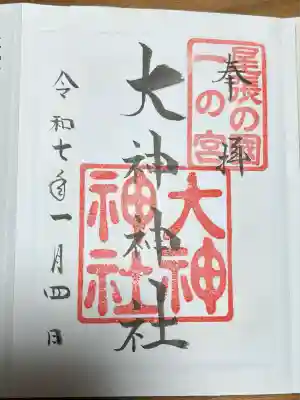 奉拝
尾張の国
一の宮
大神神社
大神
神社
令和七年一月四日